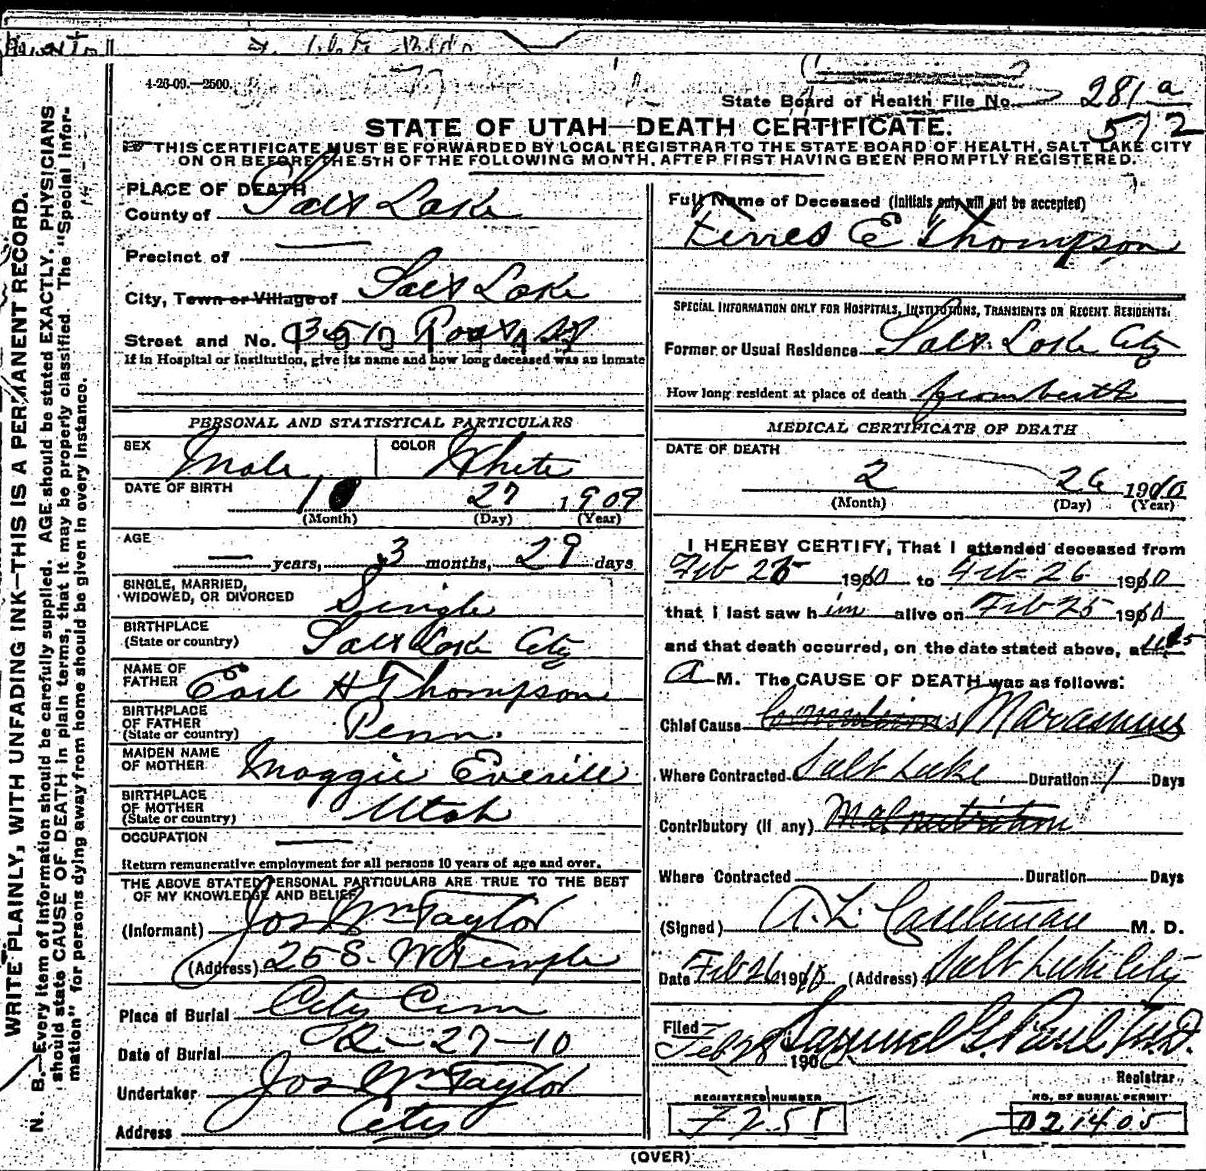 4-26-09.—2500.
State Board of Health File No. 281 a
572
STATE OF UTAH—DEATH CERTIFICATE.
THIS CERTIFICATE MUST BE FORWARDED BY LOCAL REGISTRAR TO THE STATE BOARD OF HEALTH, SALT LAKE CITY
ON OR BEFORE THE 5TH OF THE FOLLOWING MONTH, AFTER FIRST HAVING BEEN PROMPTLY REGISTERED.
WRITE PLAINLY, WITH UNFADING INK—THIS IS A PERMANENT RECORD.
N. B.—Every item of information should be carefully supplied. AGE should be stated EXACTLY. PHYSICIANS
should state CAUSE OF DEATH in plain terms, that it may be properly classified. The "Special Infor-
mation" for persons dying away from home should be given in every instance.
PLACE OF DEATH
County of Salt Lake
Precinct of
City, Town or Village of Salt Lake
Street and No.
If in Hospital or Institution, give its name and how long deceased was an inmate
PERSONAL AND STATISTICAL PARTICULARS
SEX Male COLOR White
DATE OF BIRTH 27 1909
(Month) (Day) (Year)
AGE — years, 3 months, 29 days
SINGLE, MARRIED,
WIDOWED, OR DIVORCED Single
BIRTHPLACE
(State or country) Salt Lake City
NAME OF
FATHER Earl H Thompson
BIRTHPLACE
OF FATHER
(State or country) Penn.
MAIDEN NAME
OF MOTHER Maggie Everill
BIRTHPLACE
OF MOTHER
(State or country) Utah
OCCUPATION —
Return remunerative employment for all persons 10 years of age and over.
THE ABOVE STATED PERSONAL PARTICULARS ARE TRUE TO THE BEST
OF MY KNOWLEDGE AND BELIEF
(Informant) Jos Wm Taylor
(Address) 25 S. W Temple
Place of Burial City Cem
Date of Burial 2-27-10
Undertaker Jos Wm Taylor
Address City
Full Name of Deceased (Initials only will not be accepted)
E Thompson
SPECIAL INFORMATION ONLY FOR HOSPITALS, INSTITUTIONS, TRANSIENTS OR RECENT RESIDENTS.
Former or Usual Residence Salt Lake City
How long resident at place of death from birth
MEDICAL CERTIFICATE OF DEATH
DATE OF DEATH
2 26 1910
(Month) (Day) (Year)
I HEREBY CERTIFY, That I attended deceased from
Feb 25 1910 to Feb 26 1910
that I last saw him alive on Feb 25 1910
and that death occurred, on the date stated above, at
A M. The CAUSE OF DEATH was as follows:
Chief Cause Convulsions Marasmus
Where Contracted Salt Lake Duration 1 Days
Contributory (if any) Malnutrition
Where Contracted Duration Days
(Signed) A. L. Castleman M. D.
Date Feb 26 1910 (Address) Salt Lake City
Filed Feb 28 190 Samuel G. Paul M.D.
Registrar
REGISTERED NUMBER
NO. OF BURIAL PERMIT
F 251
021405
(OVER)